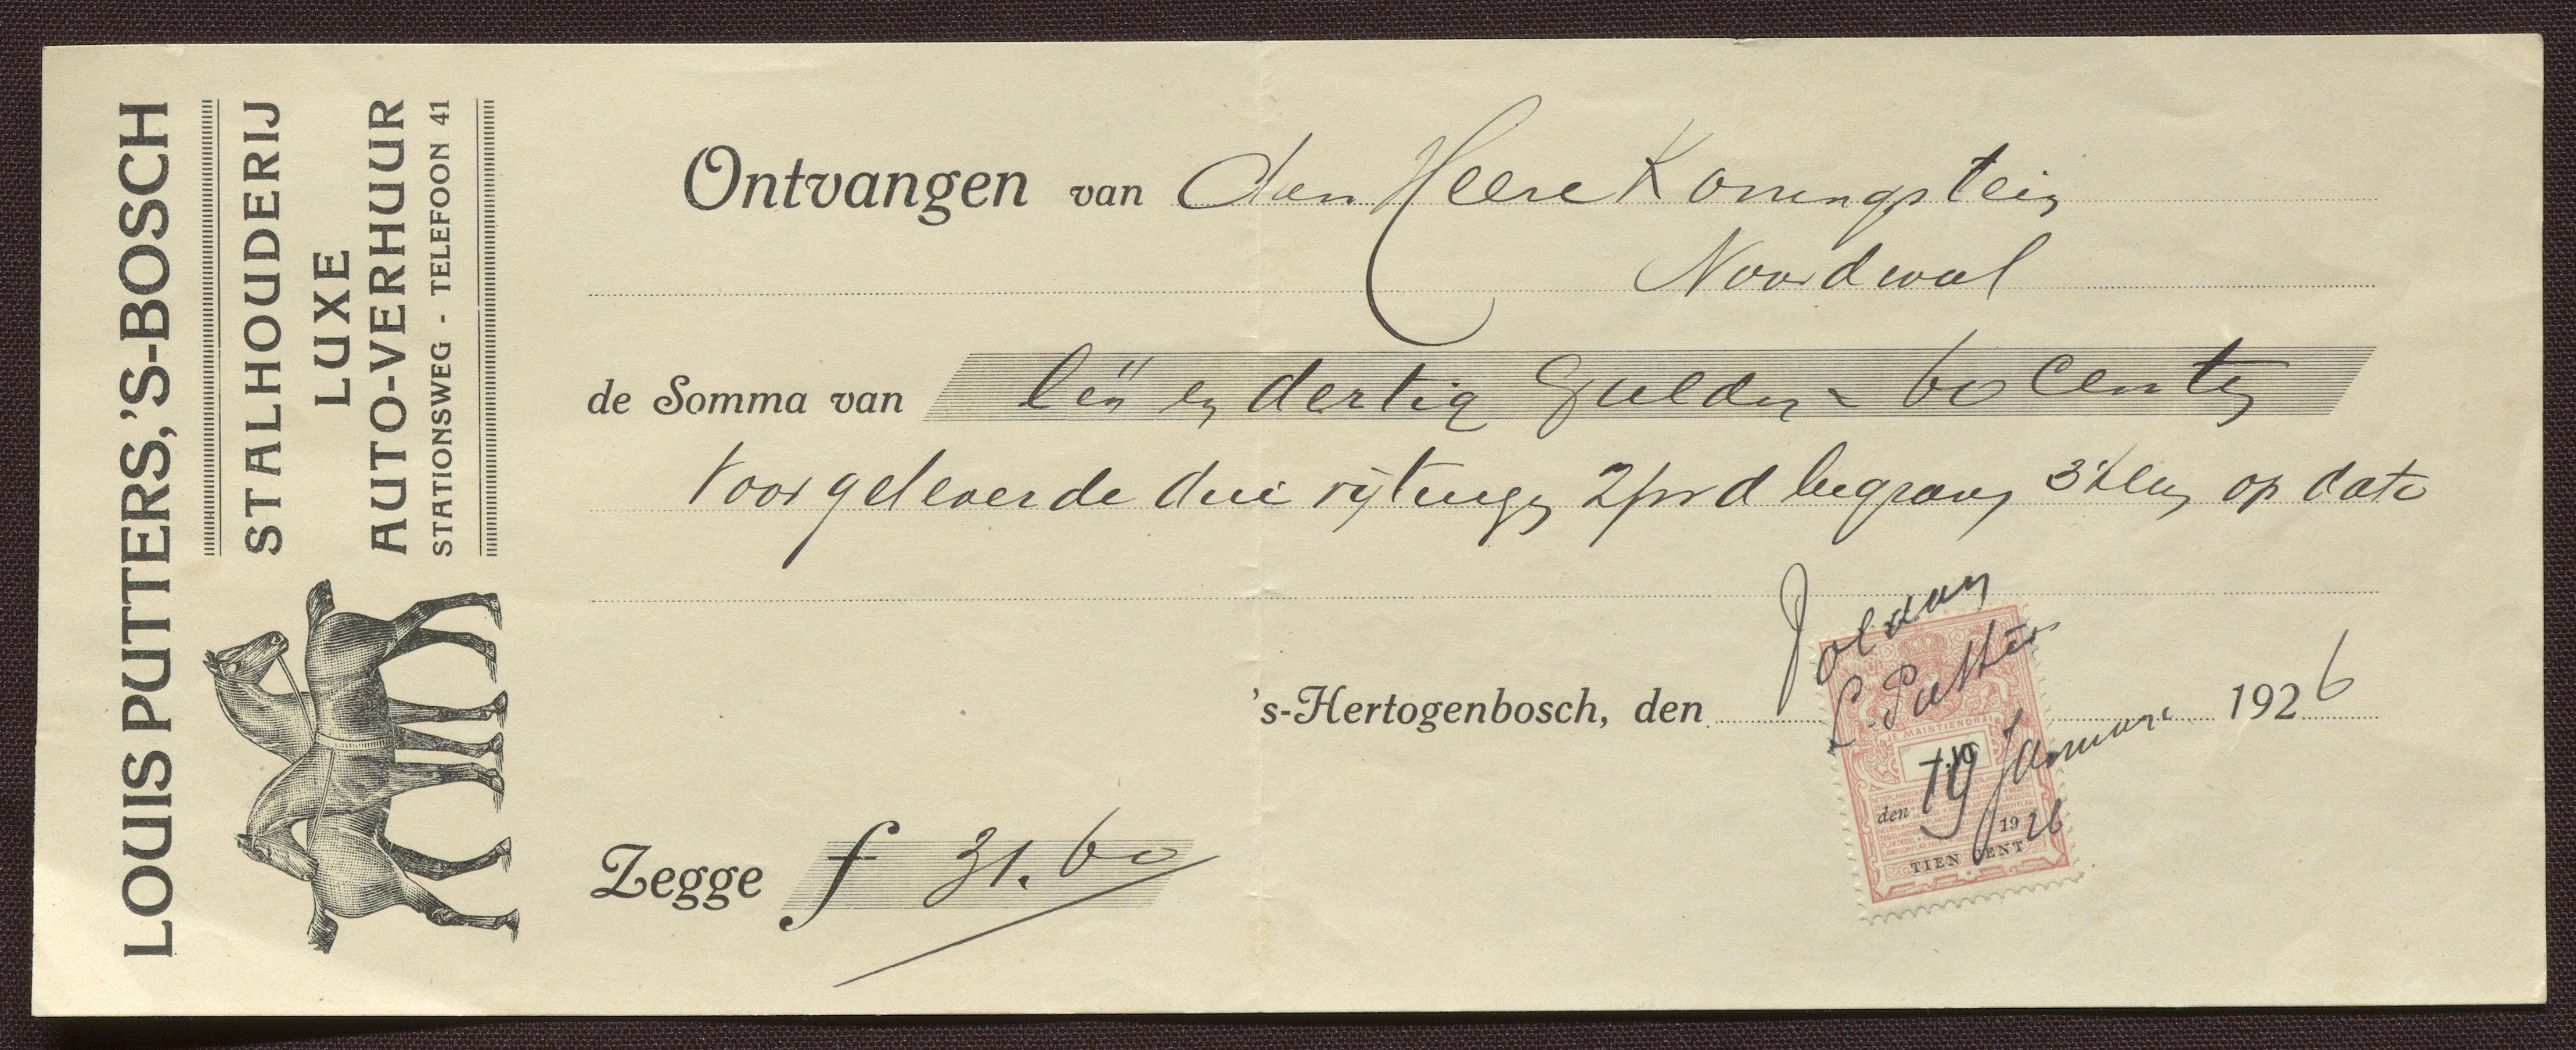 LOUIS PUTTERS, 'S-BOSCH
STALHOUDERIJ
LUXE
AUTO-VERHUUR
STATIONSWEG - TELEFOON 41
Ontvangen van den Heere Koningstein
Noordwal
de Somma van één en dertig Gulden 60 Centen
voor geleverde drie rijtuigen 2prd op dato
's-Hertogenbosch, den 1926
Voldaan
L. Putters
JE MAINTIENDRAI
den 19 Januari
1926
TIEN CENT
Zegge f 31.60